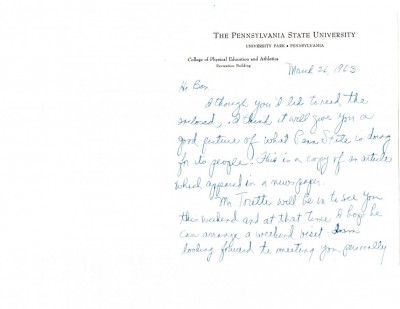 THE PENNSYLVANIA STATE UNIVERSITY
UNIVERSITY PARK • PENNSYLVANIA
College of Physical Education and Athletics
Recreation Building
March 26, 1963
Hi
I though you'd like to read the
enclosed. I think it will give you a
good picture of what Penn State is doing
for its people. This is a copy of an article
which appeared in a newspaper.
Mr. will be in to see you
this weekend and at that time I hope he
can arrange a weekend visit. Iam
looking forward to meeting you personally